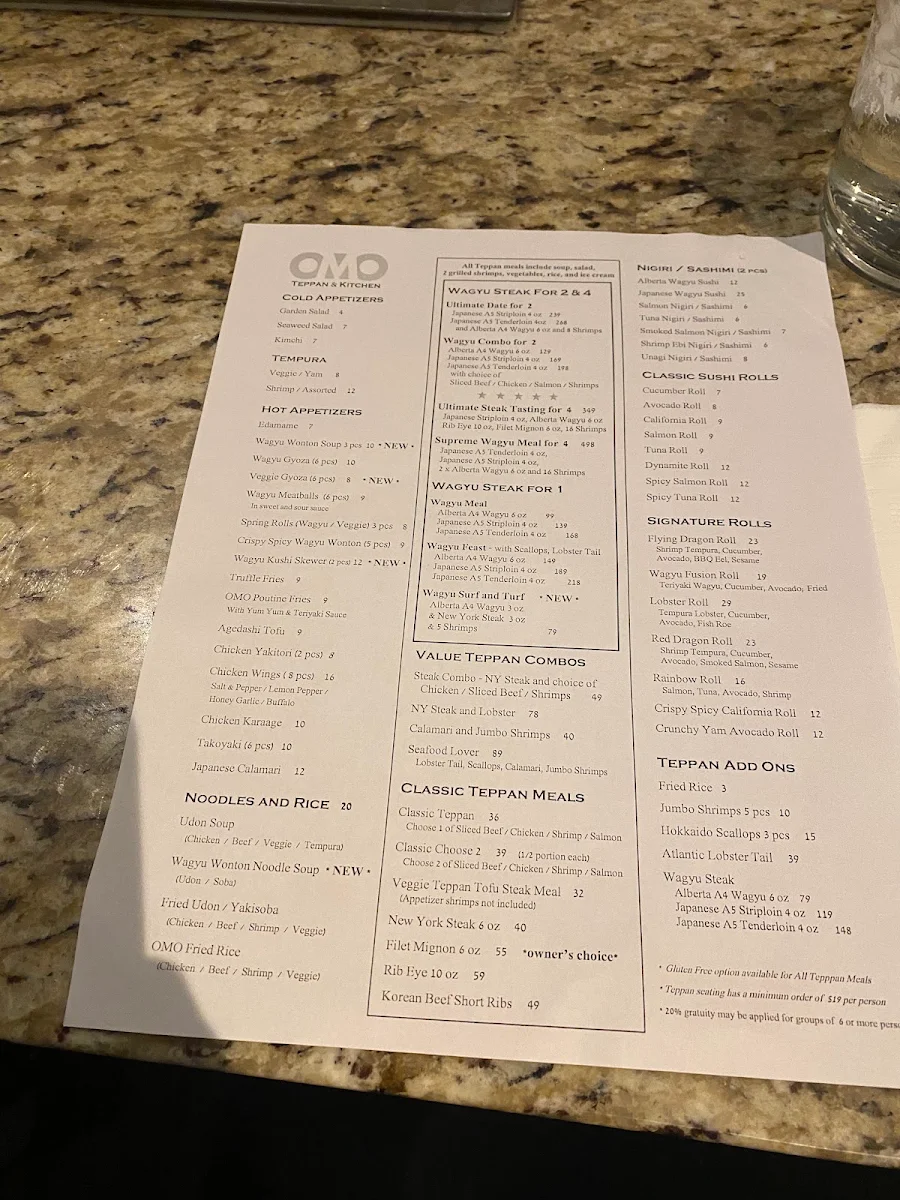 OMO
TEPPAN & KITCHEN
COLD APPETIZERS
Garden Salad 4
Seaweed Salad 7
Kimchi 7
TEMPURA
Veggie / Yam 8
Shrimp / Assorted 12
HOT APPETIZERS
Edamame 7
Wagyu Wonton Soup 3 pcs 10 • NEW •
Wagyu Gyoza (6 pcs) 10
Veggie Gyoza (6 pcs) 8 • NEW •
Wagyu Meatballs (6 pcs) 9
In sweet and sour sauce
Spring Rolls (Wagyu / Veggie) 3 pcs 8
Crispy Spicy Wagyu Wonton (5 pcs) 9
Wagyu Kushi Skewer (2 pcs) 12 • NEW •
Truffle Fries 9
OMO Poutine Fries 9
With Yum Yum & Teriyaki Sauce
Agedashi Tofu 9
Chicken Yakitori (2 pcs) 8
Chicken Wings ( 8 pcs) 16
Salt & Pepper / Lemon Pepper /
Honey Garlic / Buffalo
Chicken Karaage 10
Takoyaki (6 pcs) 10
Japanese Calamari 12
NOODLES AND RICE 20
Udon Soup
(Chicken / Beef / Veggie / Tempura)
Wagyu Wonton Noodle Soup • NEW •
(Udon / Soba)
Fried Udon / Yakisoba
(Chicken / Beef / Shrimp / Veggie)
OMO Fried Rice
(Chicken / Beef / Shrimp / Veggie)
All Teppan meals include soup, salad,
2 grilled shrimps, vegetables, rice, and ice cream
WAGYU STEAK FOR 2 & 4
Ultimate Date for 2
Japanese A5 Striploin 4 oz 239
Japanese A5 Tenderloin 4oz 268
and Alberta A4 Wagyu 6 oz and 8 Shrimps
Wagyu Combo for 2
Alberta A4 Wagyu 6 oz 129
Japanese A5 Striploin 4 oz 169
Japanese A5 Tenderloin 4 oz 198
with choice of
Sliced Beef / Chicken / Salmon / Shrimps
★ ★ ★ ★ ★
Ultimate Steak Tasting for 4 349
Japanese Striploin 4 oz, Alberta Wagyu 6 oz
Rib Eye 10 oz, Filet Mignon 6 oz, 16 Shrimps
Supreme Wagyu Meal for 4 498
Japanese A5 Tenderloin 4 oz,
Japanese A5 Striploin 4 oz,
2 x Alberta Wagyu 6 oz and 16 Shrimps
WAGYU STEAK FOR 1
Wagyu Meal
Alberta A4 Wagyu 6 oz 99
Japanese A5 Striploin 4 oz 139
Japanese A5 Tenderloin 4 oz 168
Wagyu Feast - with Scallops, Lobster Tail
Alberta A4 Wagyu 6 oz 149
Japanese A5 Striploin 4 oz 189
Japanese A5 Tenderloin 4 oz 218
Wagyu Surf and Turf • NEW •
Alberta A4 Wagyu 3 oz
& New York Steak 3 oz
& 5 Shrimps 79
VALUE TEPPAN COMBOS
Steak Combo - NY Steak and choice of
Chicken / Sliced Beef / Shrimps 49
NY Steak and Lobster 78
Calamari and Jumbo Shrimps 40
Seafood Lover 89
Lobster Tail, Scallops, Calamari, Jumbo Shrimps
CLASSIC TEPPAN MEALS
Classic Teppan 36
Choose 1 of Sliced Beef / Chicken / Shrimp / Salmon
Classic Choose 2 39 (1/2 portion each)
Choose 2 of Sliced Beef / Chicken / Shrimp / Salmon
Veggie Teppan Tofu Steak Meal 32
(Appetizer shrimps not included)
New York Steak 6 oz 40
Filet Mignon 6 oz 55 *owner's choice*
Rib Eye 10 oz 59
Korean Beef Short Ribs 49
NIGIRI / SASHIMI (2 PCS)
Alberta Wagyu Sushi 12
Japanese Wagyu Sushi 25
Salmon Nigiri / Sashimi 6
Tuna Nigiri / Sashimi 6
Smoked Salmon Nigiri / Sashimi 7
Shrimp Ebi Nigiri / Sashimi 6
Unagi Nigiri / Sashimi 8
CLASSIC SUSHI ROLLS
Cucumber Roll 7
Avocado Roll 8
California Roll 9
Salmon Roll 9
Tuna Roll 9
Dynamite Roll 12
Spicy Salmon Roll 12
Spicy Tuna Roll 12
SIGNATURE ROLLS
Flying Dragon Roll 23
Shrimp Tempura, Cucumber,
Avocado, BBQ Eel, Sesame
Wagyu Fusion Roll 19
Teriyaki Wagyu, Cucumber, Avocado, Fried
Lobster Roll 29
Tempura Lobster, Cucumber,
Avocado, Fish Roe
Red Dragon Roll 23
Shrimp Tempura, Cucumber,
Avocado, Smoked Salmon, Sesame
Rainbow Roll 16
Salmon, Tuna, Avocado, Shrimp
Crispy Spicy California Roll 12
Crunchy Yam Avocado Roll 12
TEPPAN ADD ONS
Fried Rice 3
Jumbo Shrimps 5 pcs 10
Hokkaido Scallops 3 pcs 15
Atlantic Lobster Tail 39
Wagyu Steak
Alberta A4 Wagyu 6 oz 79
Japanese A5 Striploin 4 oz 119
Japanese A5 Tenderloin 4 oz 148
* Gluten Free option available for All Tepppan Meals
* Teppan seating has a minimum order of $19 per person
* 20% gratuity may be applied for groups of 6 or more perso